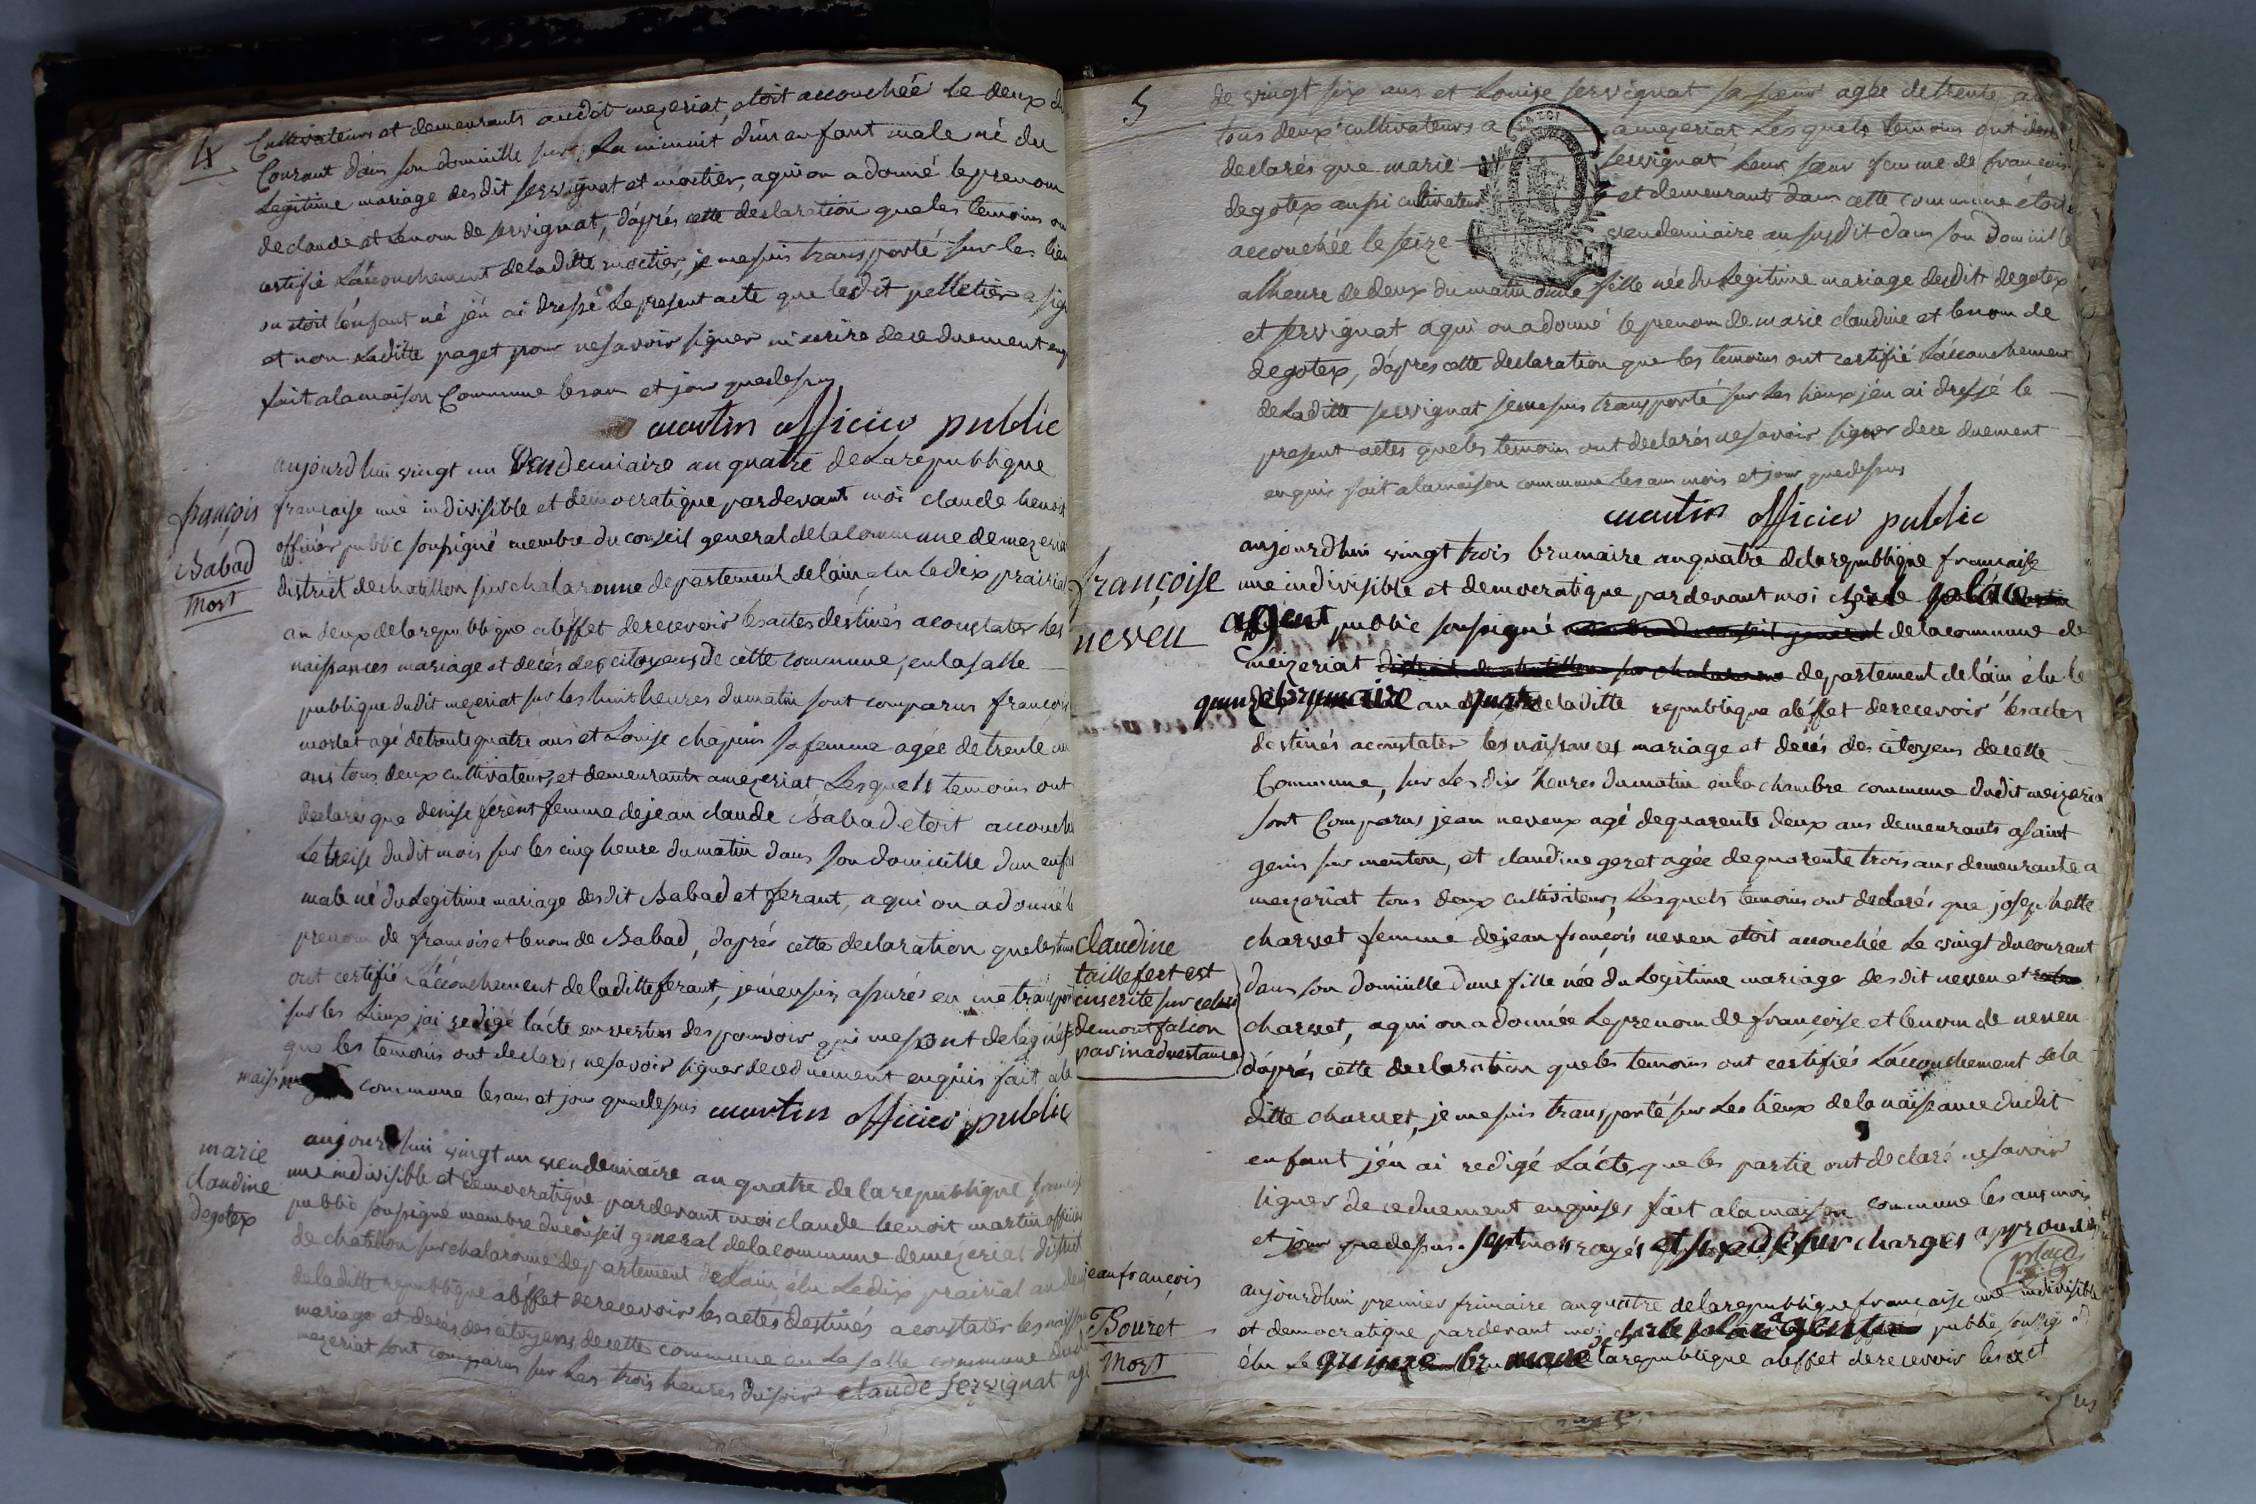 4
Cultivateurs et demeurants audit mezeriat, etoit accouchée le deux du
Courant dans son domicille sur La minuit d'un enfant male né du
Legitime mariage desdit servignat et moctier, aqui on a donné le prenom
de claude et lenom de servignat, d'aprés cette declaration que les temoins on
certifié L'accouchement de laditte moctier, je me suis transporté sur les lieu
ou etoit l'enfant né j'en ai dressé Le present acte que ledit pelletier a sign
et non Laditte paget pour ne savoir signer ni ecrire de ce duement enq
fait a la maison Commune les an et jour que dessus
martin officier public
françois
Babad
Mort
aujourd'hui vingt un Vendemiaire an quatre de La republique
francaise une indivisible et democratique pardevant moi claude benoit
officier public soussigné membre du conseil general de la commune de mezeria
district de chatillon sur chalaronne departement de l'ain elu le dix prairial
an deux de la republique a l'effet de recevoir les actes destinés a constater les
naissances mariage et décés des citoyens de cette commune, en la salle
publique dudit mezeriat sur les huit heures du matin sont comparus françois
morlet agé de trente quatre ans et Louise chapuis sa femme agée de trente un
ans tous deux cultivateurs, et demeurants a mezeriat Lesquels temoins ont
declarés que denise ferent femme de jean claude Babad etoit accouchée
Le treise dudit mois sur les cinq heure du matin dans son domicille d'un enfa
male né du Legitime mariage desdit Babad et ferant, a qui on a donné le
prenom de francois et lenom de Babad, d'aprés cette declaration que les tem
ont certifié L'accouchement de laditte ferant, je m'en suis assurés en me transpor
sur les Lieux j'ai redigé l'acte en vertus des pouvoir qui me sont delegués
que les temoins ont declarés ne savoir signer de ce duement enquis fait a la
maison commune les an et jour que dessus martin officier public
marie
claudine
degotex
aujourd'hui vingt un vendemiaire an quatre de la republique francais
une indivisible et democratique pardevant moi claude benoit martin officier
public soussigné membre du conseil general de la commune de mezeriat district
de chatillon sur chalaronne departement de L'ain, élu Le dix prairial an deux
de laditte republique a l'effet de recevoir les actes destinés a constater les naissan
mariage et decés des citoyens de cette commune en La salle commune dudit
mezeriat sont comparus sur Les trois heures du soir claude servignat agé
5
de vingt six ans et Louise servignat sa soeur agée de trente an
tous deux cultivateurs a mezeriat Lesquels temoins ont
declarés que marie servignat Leur soeur femme de francois
degotex aussi cultivateur et demeurant dans cette commune étoit
accouchée le seize vendemiaire an susdit dans son domicille
a l'heure de deux du matin d'une fille née du Legitime mariage desdit degotex
et servignat a qui on a donné le prenom de marie claudine et lenom de
degotex, d'aprés cette declaration que les temoins ont certifié L'accouchement
de Laditte servignat je me suis transporté sur Les lieux j'en ai dressé le
present actes que les temoins ont declarés ne savoir signer de ce duement
enquis fait a la maison commune les an mois et jour que dessus
martin officier public
françoise
neveu
aujourd'hui vingt trois brumaire an quatre de la republique francaise
une indivisible et democratique pardevant moi
agent public soussigné membre du conseil general de la commune de
meizeriat district de chatillon sur chalaronne departement de l'ain élu le
quinze brumaire an quatre de laditte republique a l'effet de recevoir les actes
destinés a constater les naissances mariage et decés des citoyens de cette
Commune, sur Les dix heures du matin en la chambre commune dudit meizeria
sont Comparus jean neveux agé de quarente deux ans demeurants a saint
genis sur menton, et claudine geret agée de quarente trois ans demeurante a
mezeriat tous deux cultivateurs, Lesquels temoins ont declarés que josephette
charvet femme de jean françois neveu etoit accouchée Le vingt du courant
dans son domicille d'une fille née du Legitime mariage desdit neveu et
charvet, a qui on a donnée Le prenom de françoise et lenom de neveu
d'aprés cette declaration que les temoins ont certifiés L'accouchement de la
ditte charvet, je me suis transporté sur Les lieux de la naissance dudit
enfant j'en ai redigé L'acte que les partie ont declaré ne savoir
signer de ce duement enquises fait a la maison commune les ans mois
et jour que dessus. sept mots rayés et six de surcharges approuvés
claudine
taillefert est
inscrite sur celui
de montfalcon
par inadvertance
jean françois
Bouret
Mort
aujourd'hui premier frimaire an quatre de la republique francaise une indivisible
et democratique pardevant moi public soussigné
élu Le quinze brumaire la republique a l'effet de recevoir les act